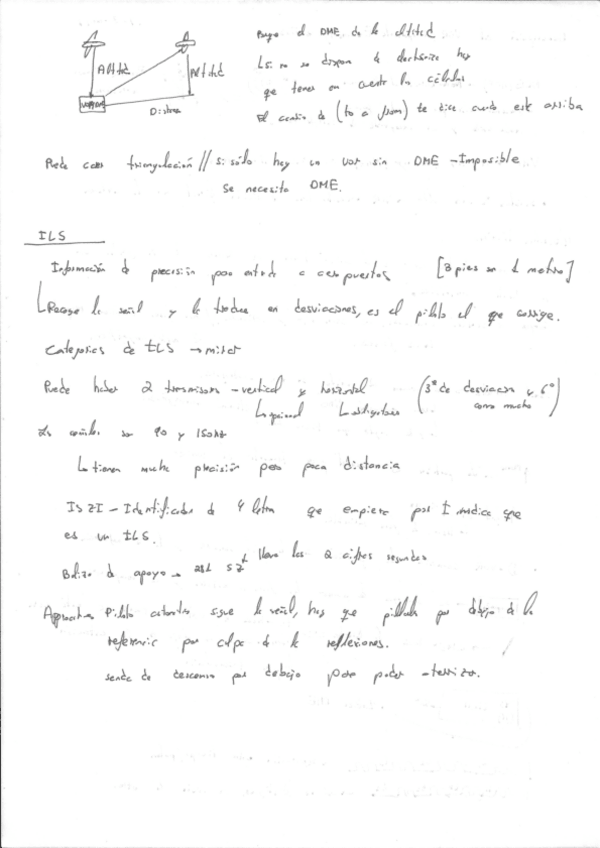 Altitud
Altitud
VOR/DME
Distancia
el DME da la altitud
Si no se dispone de hay
que tener en cuenta los cálculos
El cambio de (to a from) te dice cuando está arriba
Puede triangulación // si sólo hay un VOR sin DME - Imposible
Se necesita DME.
ILS
Información de precisión para entrada a aeropuertos [3 pies son 1 metro]
Recoge la señal y la traduce en desviaciones, es el piloto el que corrige.
Categorías de ILS → mirar
Puede haber 2 transmisores - vertical y horizontal (3º de desviación y 6º
como mucho)
opcional obligatorio
Las señales son 90 y 150Hz
tienen mucha precisión pero poca distancia
ISZI - Identificador de 4 letras que empieza por I indica que
es un ILS.
de apoyo → SZ lleva las 2 cifras segundas
Piloto automático sigue la señal, hay que pillarla por debajo de la
referencia por culpa de la reflexiones.
senda de descenso por debajo para poder aterrizar.